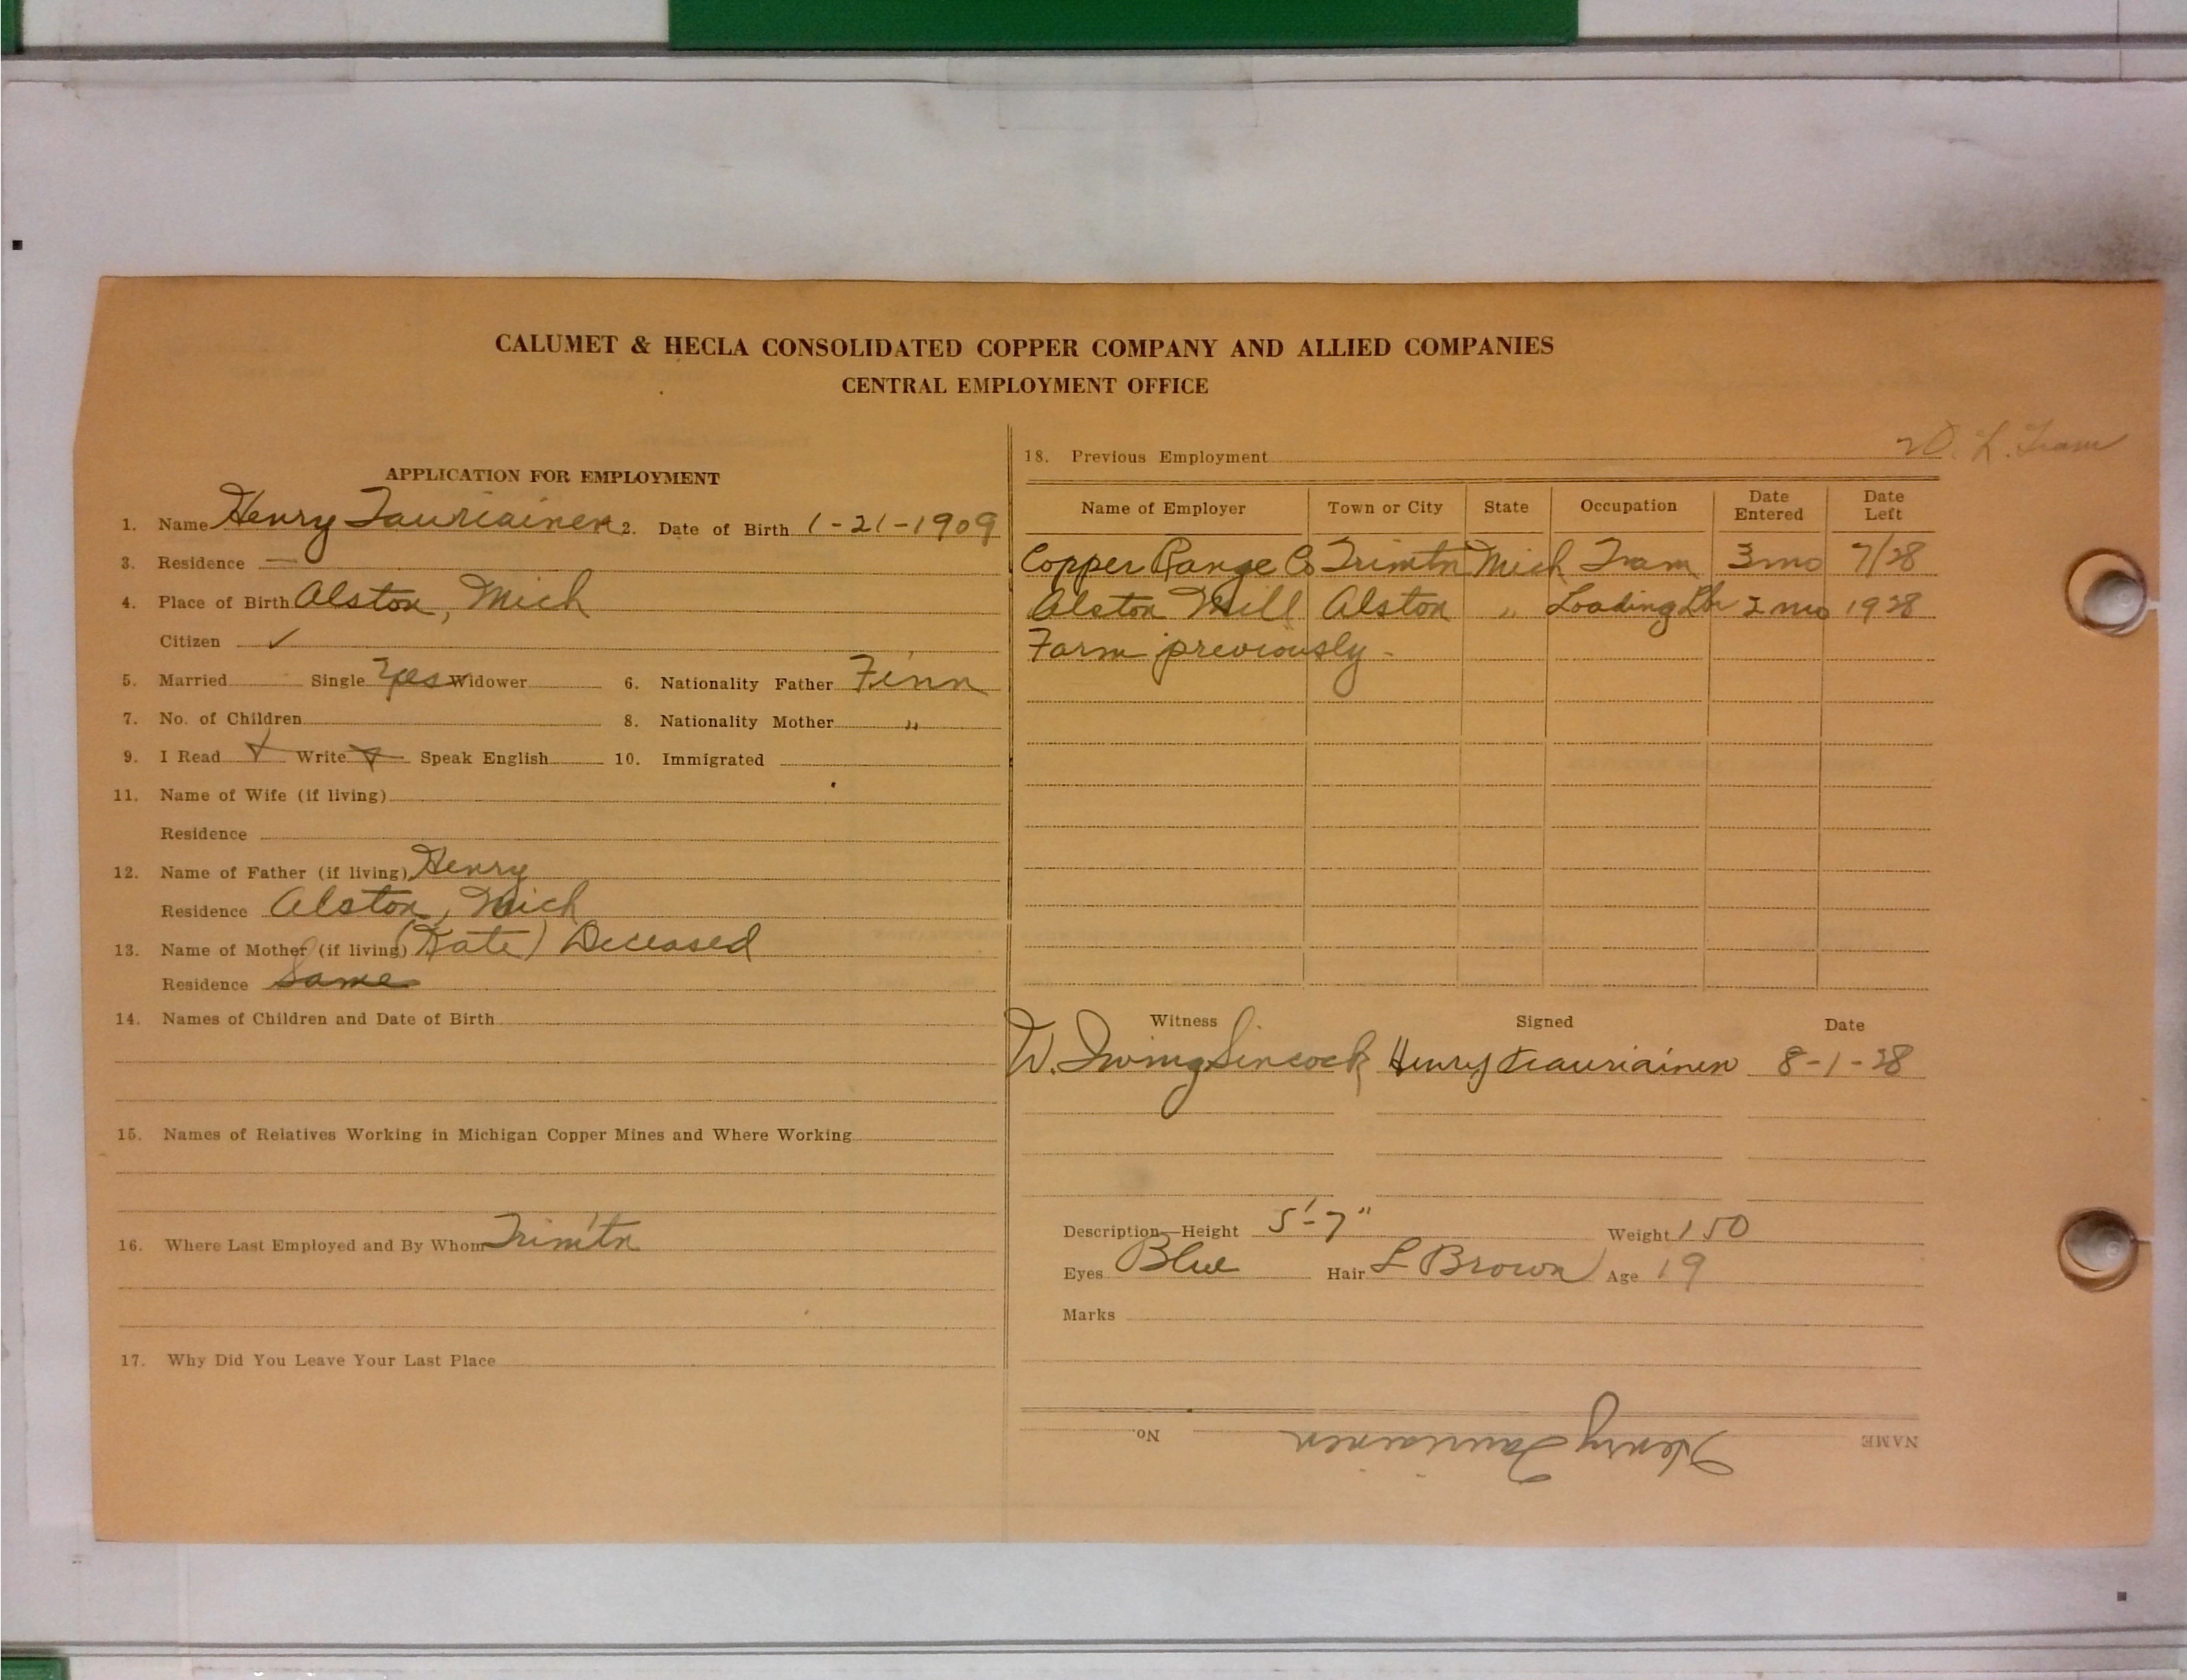 CALUMET & HECLA CONSOLIDATED COPPER COMPANY AND ALLIED COMPANIES
CENTRAL EMPLOYMENT OFFICE
APPLICATION FOR EMPLOYMENT
1. Name Henry Tauriainen 2. Date of Birth 1-21-1909
3. Residence —
4. Place of Birth Alston, Mich
Citizen ✓
5. Married Single Yes Widower 6. Nationality Father Finn
7. No. of Children 8. Nationality Mother "
9. I Read ✓ Write ✓ Speak English 10. Immigrated
11. Name of Wife (if living)
Residence
12. Name of Father (if living) Henry
Residence Alston, Mich
13. Name of Mother (if living) (Kate) Deceased
Residence Same
14. Names of Children and Date of Birth
15. Names of Relatives Working in Michigan Copper Mines and Where Working
16. Where Last Employed and By Whom Trimtn
17. Why Did You Leave Your Last Place
18. Previous Employment L. Tram
Name of Employer Town or City State Occupation Date Entered Date Left
Copper Range Co Trimtn Mich Tram 3 mo 7/28
Alston Mill Alston " Loading Lbr 2 mo 1928
Farm previously -
Witness Signed Date
W. Irving Sincock Henry Tauriainen 8-1-28
Description—Height 5'-7" Weight 150
Eyes Blue Hair L Brown Age 19
Marks
NAME Henry Tauriainen No.